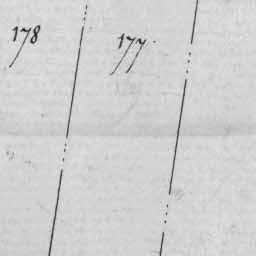 178 177